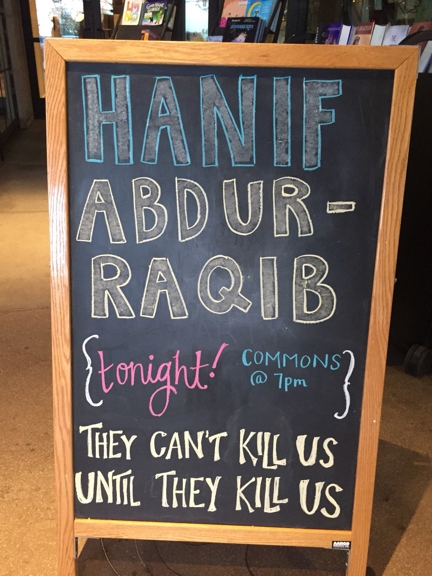 HANIF
ABDUR-
RAQIB
{tonight! COMMONS
@ 7pm}
THEY CAN'T KILL US
UNTIL THEY KILL US